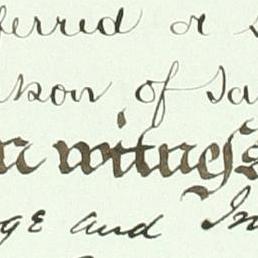 ferred or
of
n witness
ge and In